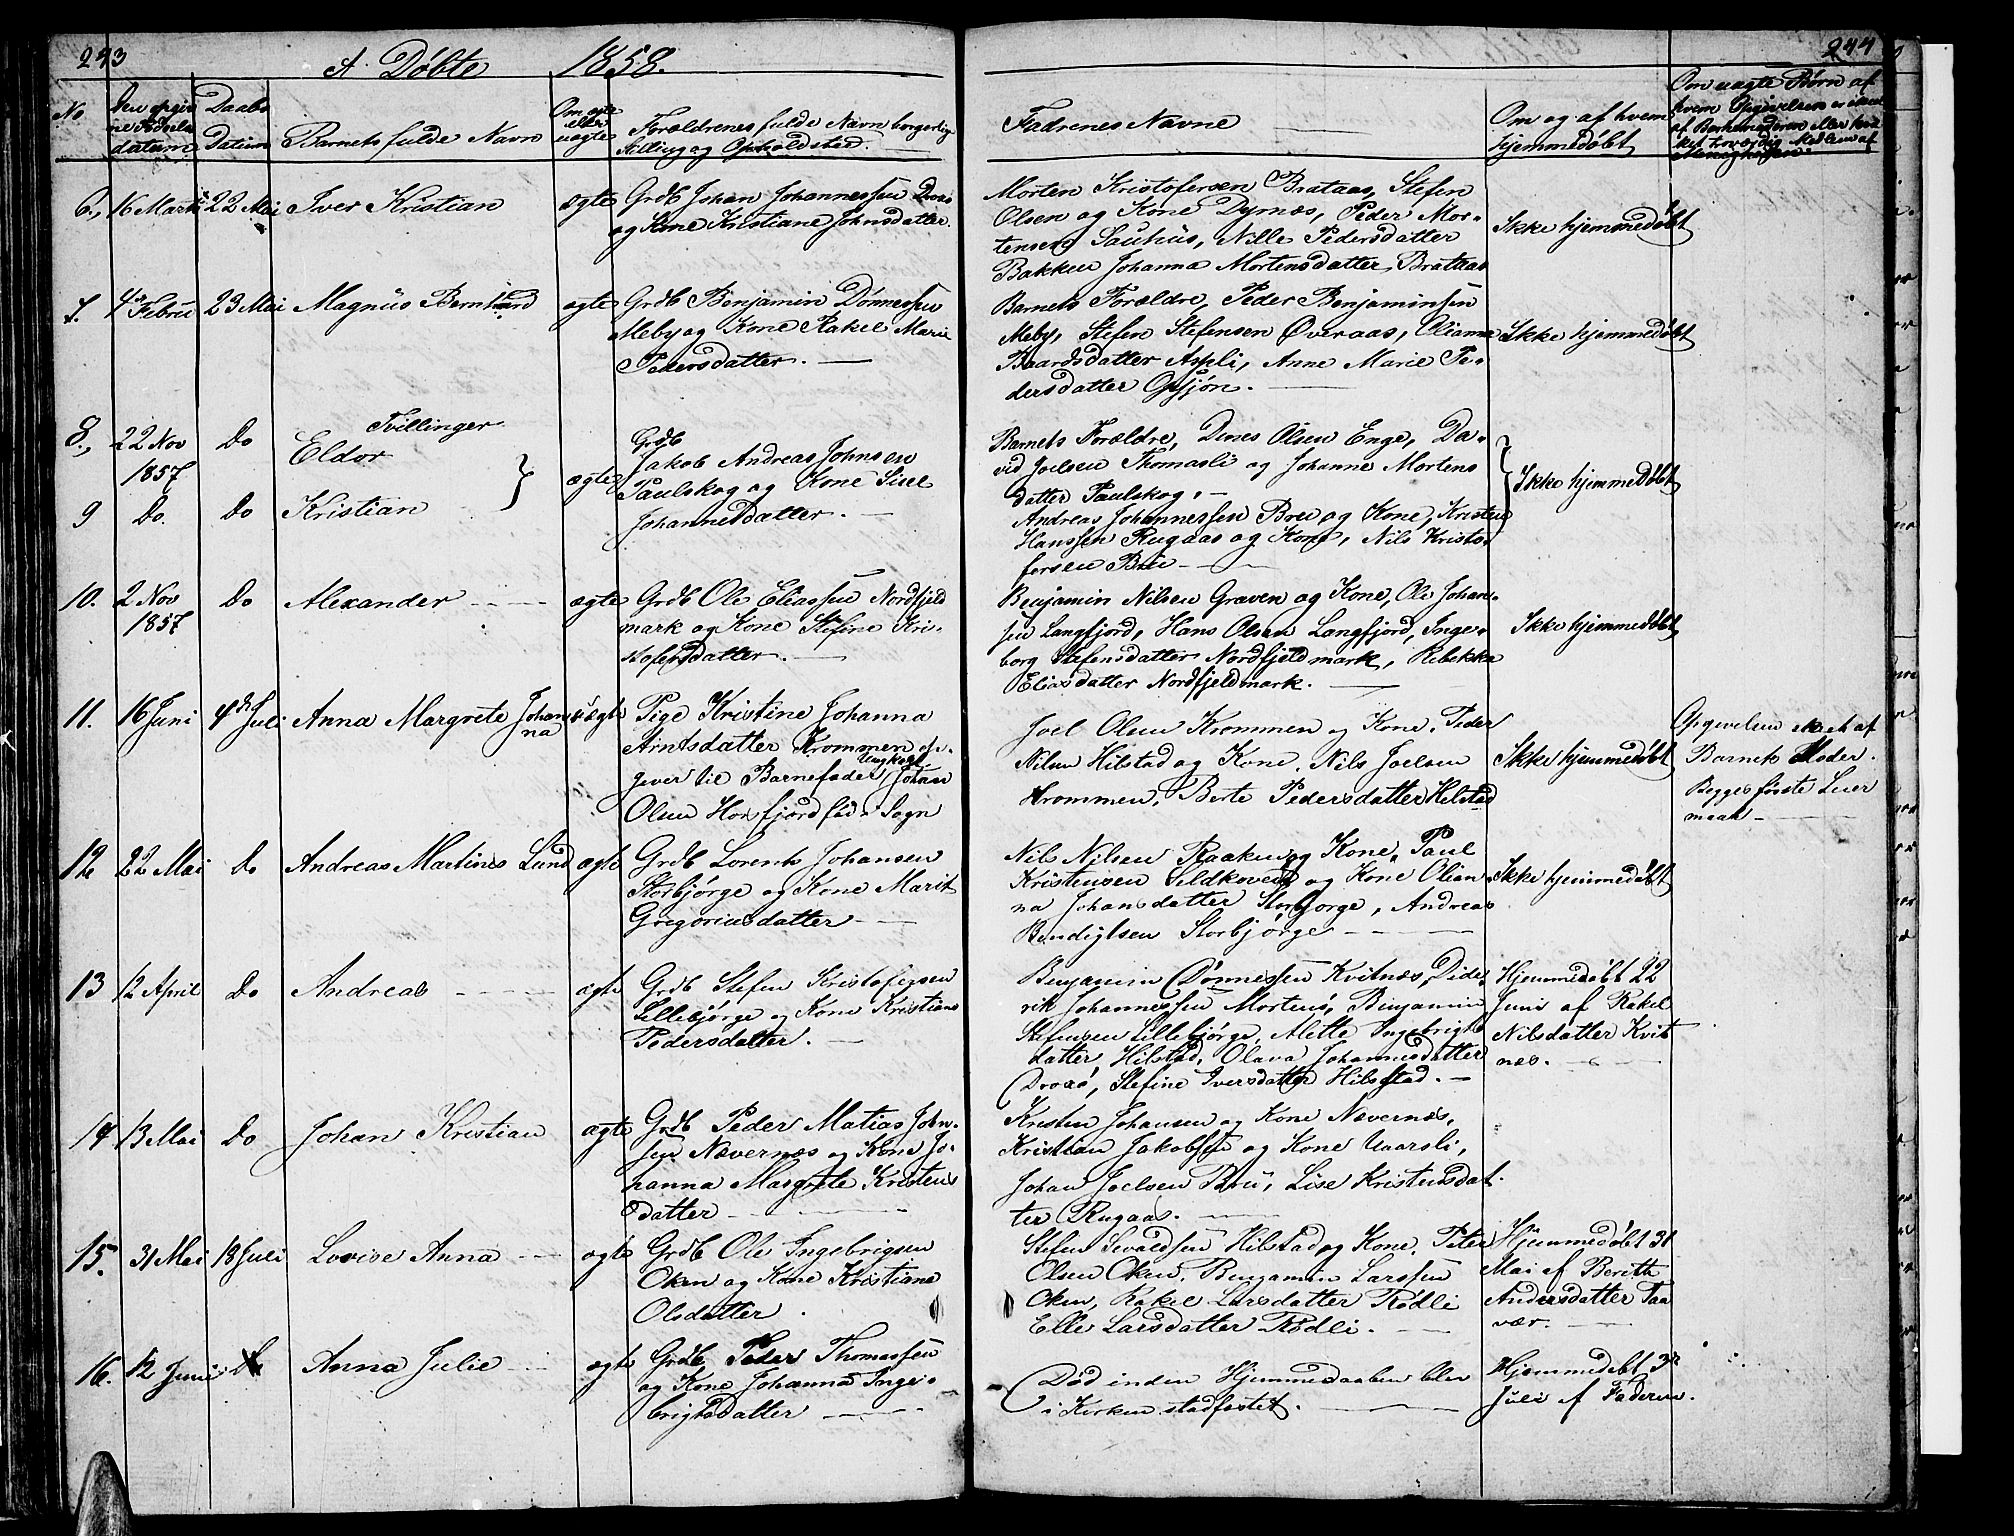 243
A. Döbte 1858.
No
Den opgiv
ne Fødsels
datum
Daabs
Datum
Barnets fulde Navn
Om ægte
eller
uægte
Forældrenes fulde Navn borgerlig
Stilling og Opholdsted.
6., 16 Marts 22 Mai Iver Kristian ægte
Grdb Johan Johannessen
og Kone Kristiane Johnsdatter.
7. 4de Febru 23 Mai Magnus Bernhard ægte
Grdb Benjamin Dønnessen
Meby og Kone Rakel Marie
Pedersdatter.
Tvillinger
8., 22 Nov 1857 Do Eldor
9 Do. Do Kristian
ægte
Grdb
Jakob Andreas Johnsen
Paulskog og Kone Sisel
Johannesdatter.
10. 2 Nov 1857 Do Alexander ægte
Grdb Ole Eliassen Nordfjeld
mark og Kone Stefine Kri-
stofersdatter.
11. 16 Juni 4de Juli Anna Margrete Johan
na
uægte
Pige Kristine Johanna
Arntsdatter Krommen op-
giver til Barnefader Ungkarl Johan
Olsen Horsfjord Sogn
12 22 Mai Do Andreas Martines Lund ægte
Grdb Lorents Johansen
Storbjørge og Kone Marit
Gregoriusdatter
13 12 April Do Andreas ægte
Grdb Stefen Kristofersen
Lillebjørge og Kone Kristiane
Pedersdatter.
14 13 Mai Do Johan Kristian ægte
Grdb Peder Matias John-
sen Nævernæs og Kone Jo-
hanna Margrete Kristens
datter
15. 31 Mai 18 Juli Lovise Anna ægte
Grdb Ole Ingebrigsen
Oken og Kone Kristiane
Olsdatter.
16. 12 Juni Do Anna Julie ægte
Grdb Peder Thomassen
og Kone Johanna Inge-
brigtsdatter
244
Fadrenes Navne
Om og af hvem
hjemmedøbt
Om uægte Børn af
hvem Opgivelsen er skeet
af Barnemoderen eller hvil
ket Medlem af
Menigheden.
Morten Kristofersen Brataas, Stefen
Olsen og Kone Dyrnæs, Peder Mor-
tensen Sauhus, Nille Pedersdatter
Bakken Johanna Mortensdatter Brataas
Ikke hjemmedøbt
Barnets Forældre, Peder Benjaminsen
Meby, Stefen Stefensen Øveraas, Olianna
Baardsdatter Aspli, Anne Marie Pe-
dersdatter Opsjøn.
Ikke hjemmedøbt
Barnets Forældre, Dines Olsen Enge, Da-
vid Joelsen Thomasli og Johanne Mortens
datter Paulskog.
Andreas Johannessen Bru og Kone, Kristen
Hanssen Rugaas og Kone, Nils Kristo-
fersen Bru
Ikke hjemmedøbt
Benjamin Nilsen Graven og Kone, Ole Johan-
sen Langfjord, Hans Olsen Langfjord, Inge-
borg Stefensdatter Nordfjeldmark, Rebekka
Eliasdatter Nordfjeldmark.
Ikke hjemmedøbt
Joel Olsen Krommen og Kone, Peder
Nilsen Hilstad og Kone, Nils Joelsen
Krommen, Berte Pedersdatter Hilstad
Ikke hjemmedøbt
Opgivelsen skeet af
Barnets Moder.
Begges første Leier
maal
Nils Nilsen Raaken og Kone, Paul
Kristensen Sildkoven og Kone Olian-
na Johansdatter Storbjørge, Andreas
Bendigtsen Storbjørge
Ikke hjemmedøbt
Benjamin Dønnessen Kvitnæs, Dide-
rik Johannessen Mortenø, Benjamin
Stefensen Lillebjørge, Alette Ingebrigts
datter Hilstad, Olava Johannesdatter
Stefine Iversdatter Hilstad.
Hjemmedøbt 22
Juni af Rakel
Nilsdatter Kvit
næs.
Kristen Johansen og Kone Nævernæs,
Kristian Jakobsen og Kone
Johan Joelsen Bru, Lise Kristensdat-
ter Rugaas.
Stefen Sevaldsen Hilstad og Kone, Peter
Olsen Oken, Benjamin Larssen
Oken, Rakel Larsdatter Rødli
Elle Larsdatter Rødli.
Hjemmedøbt 31
Mai af Berith
Andersdatter Taa
vær.
Død inden Hjemmedaaben blev
i Kirken stadfæstet.
Hjemmedøbt 3de
Juli af Faderen.